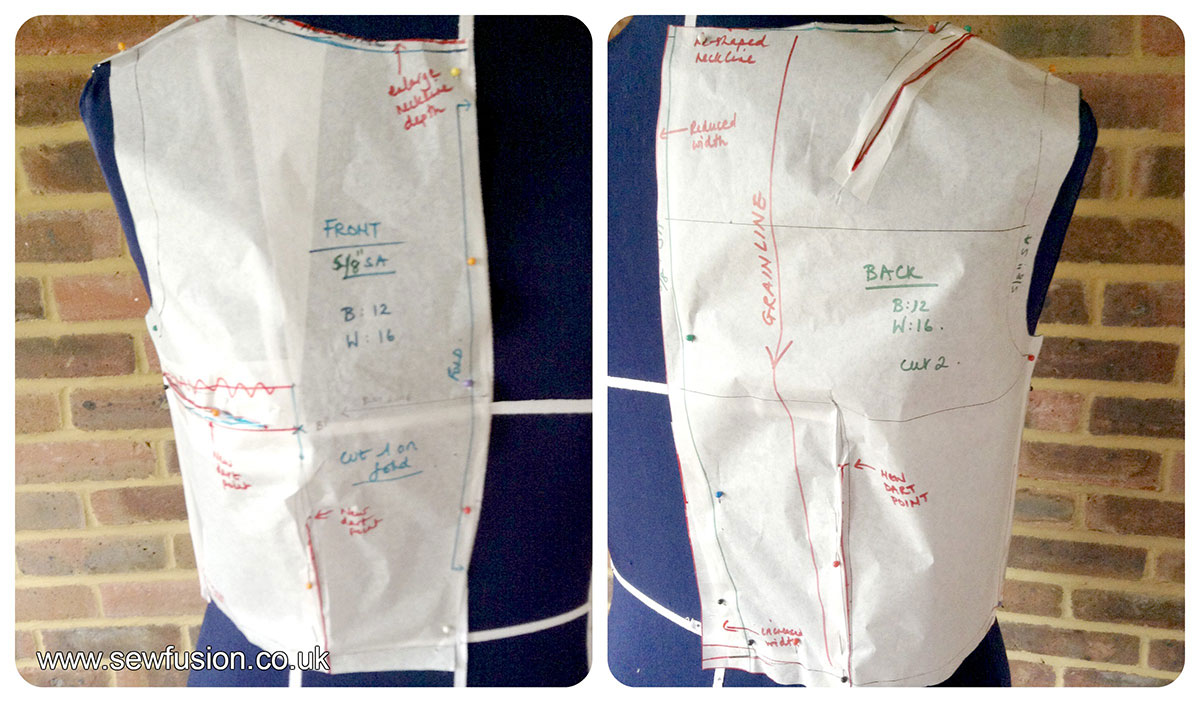 enlarge
neckline
depth
FRONT
5/8" SA
B: 12
W: 16
FOLD
cut 1 on
fold
New
dart
point
New
dart
point
www.sewfusion.co.uk
Re-shaped
neckline
Reduced
width
GRAINLINE
BACK
B: 12
W: 16.
cut 2.
5/8"
NEW
DART
POINT
increase
width